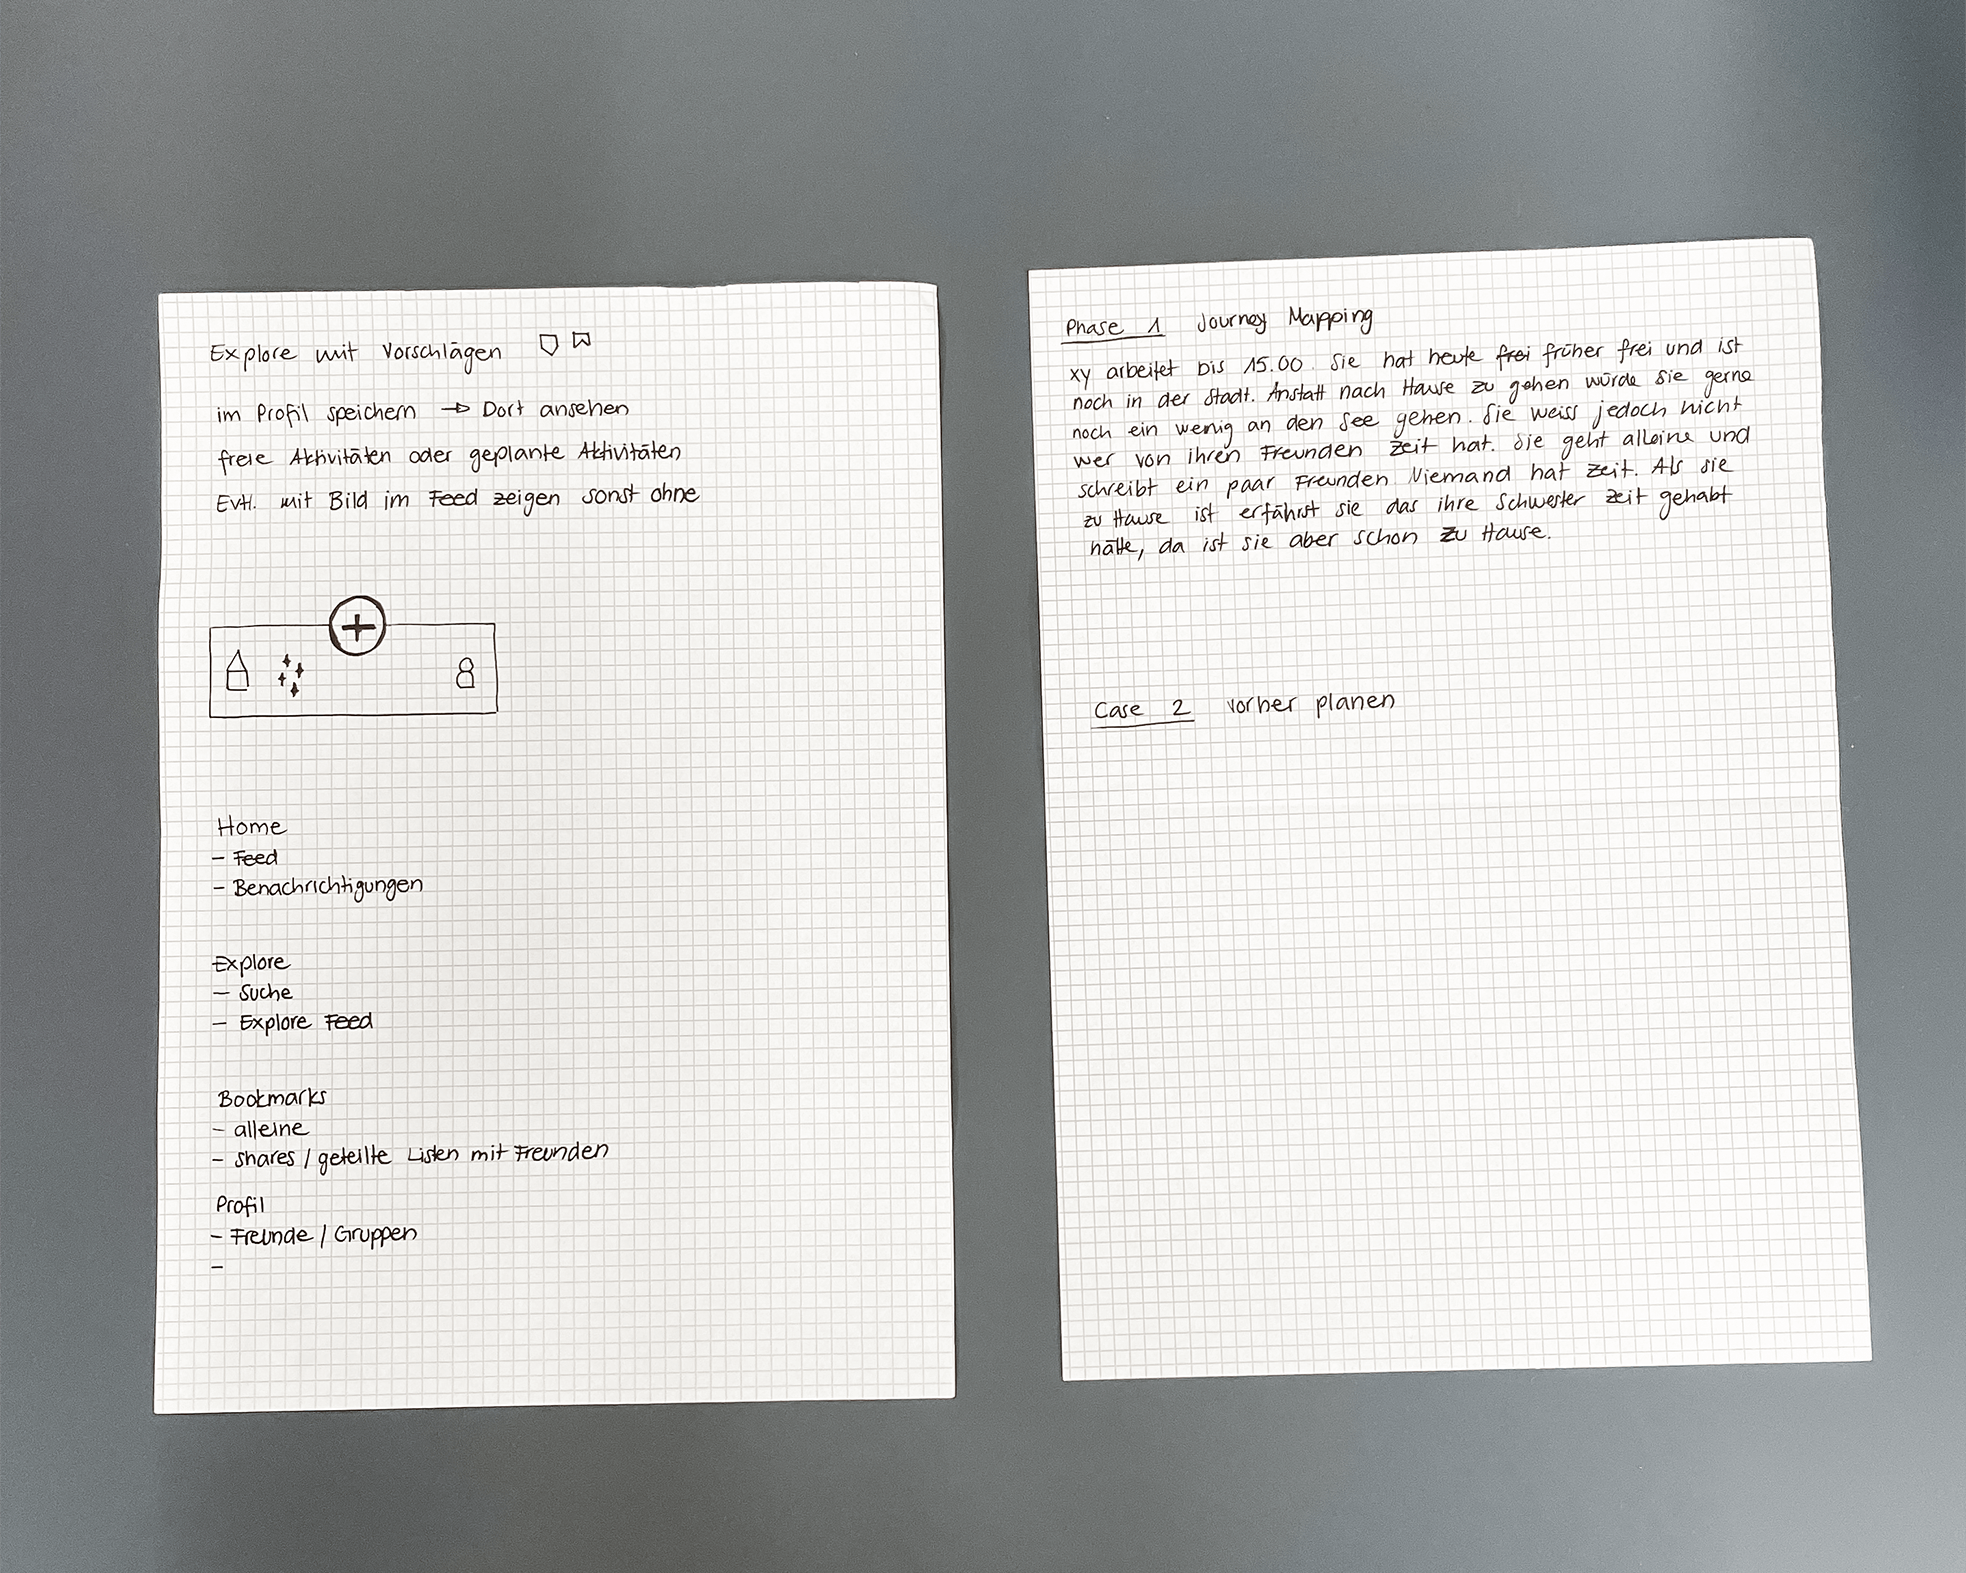 Explore mit Vorschlägen
im Profil speichern → Dort ansehen
freie Aktivitäten oder geplante Aktivitäten
Evtl. mit Bild im Feed zeigen sonst ohne
+
Home
- Feed
- Benachrichtigungen
Explore
- Suche
- Explore Feed
Bookmarks
- alleine
- shares / geteilte Listen mit Freunden
Profil
- Freunde / Gruppen
-
Phase 1 Journey Mapping
xy arbeitet bis 15.00. Sie hat heute frei früher frei und ist
noch in der Stadt. Anstatt nach Hause zu gehen würde sie gerne
noch ein wenig an den See gehen. Sie weiss jedoch nicht
wer von ihren Freunden Zeit hat. Sie geht alleine und
schreibt ein paar Freunden Niemand hat Zeit. Als sie
zu Hause ist erfährt sie das ihre Schwester Zeit gehabt
hätte, da ist sie aber schon zu Hause.
Case 2 vorher planen